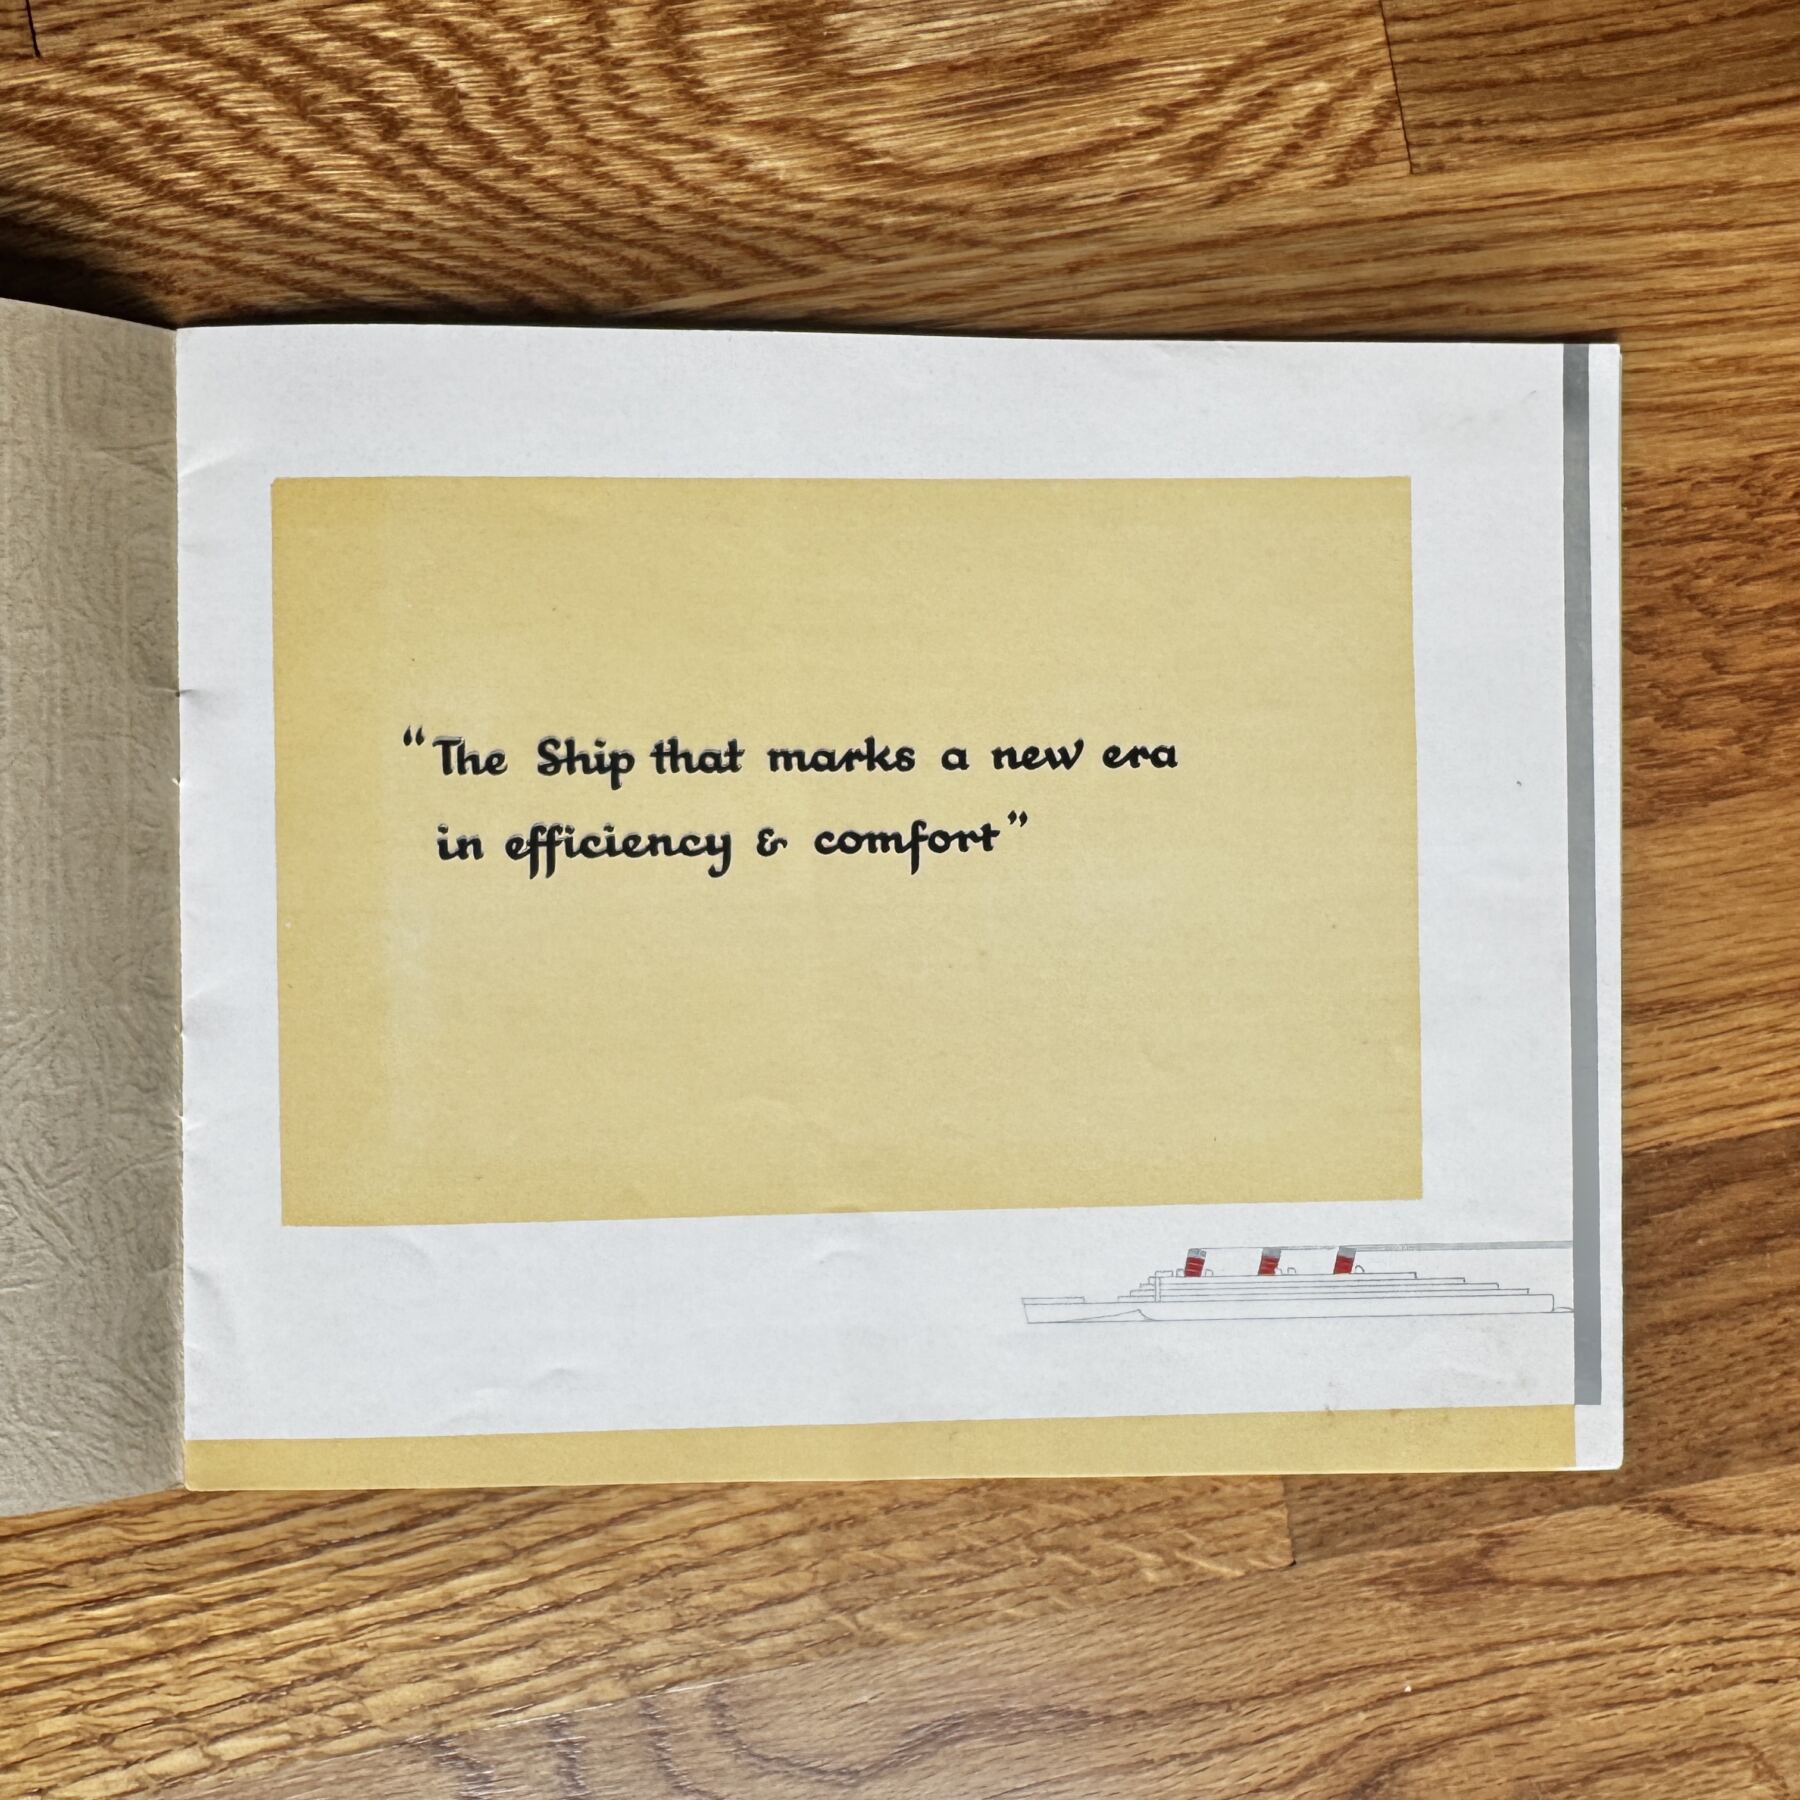 “The Ship that marks a new era
in efficiency & comfort”